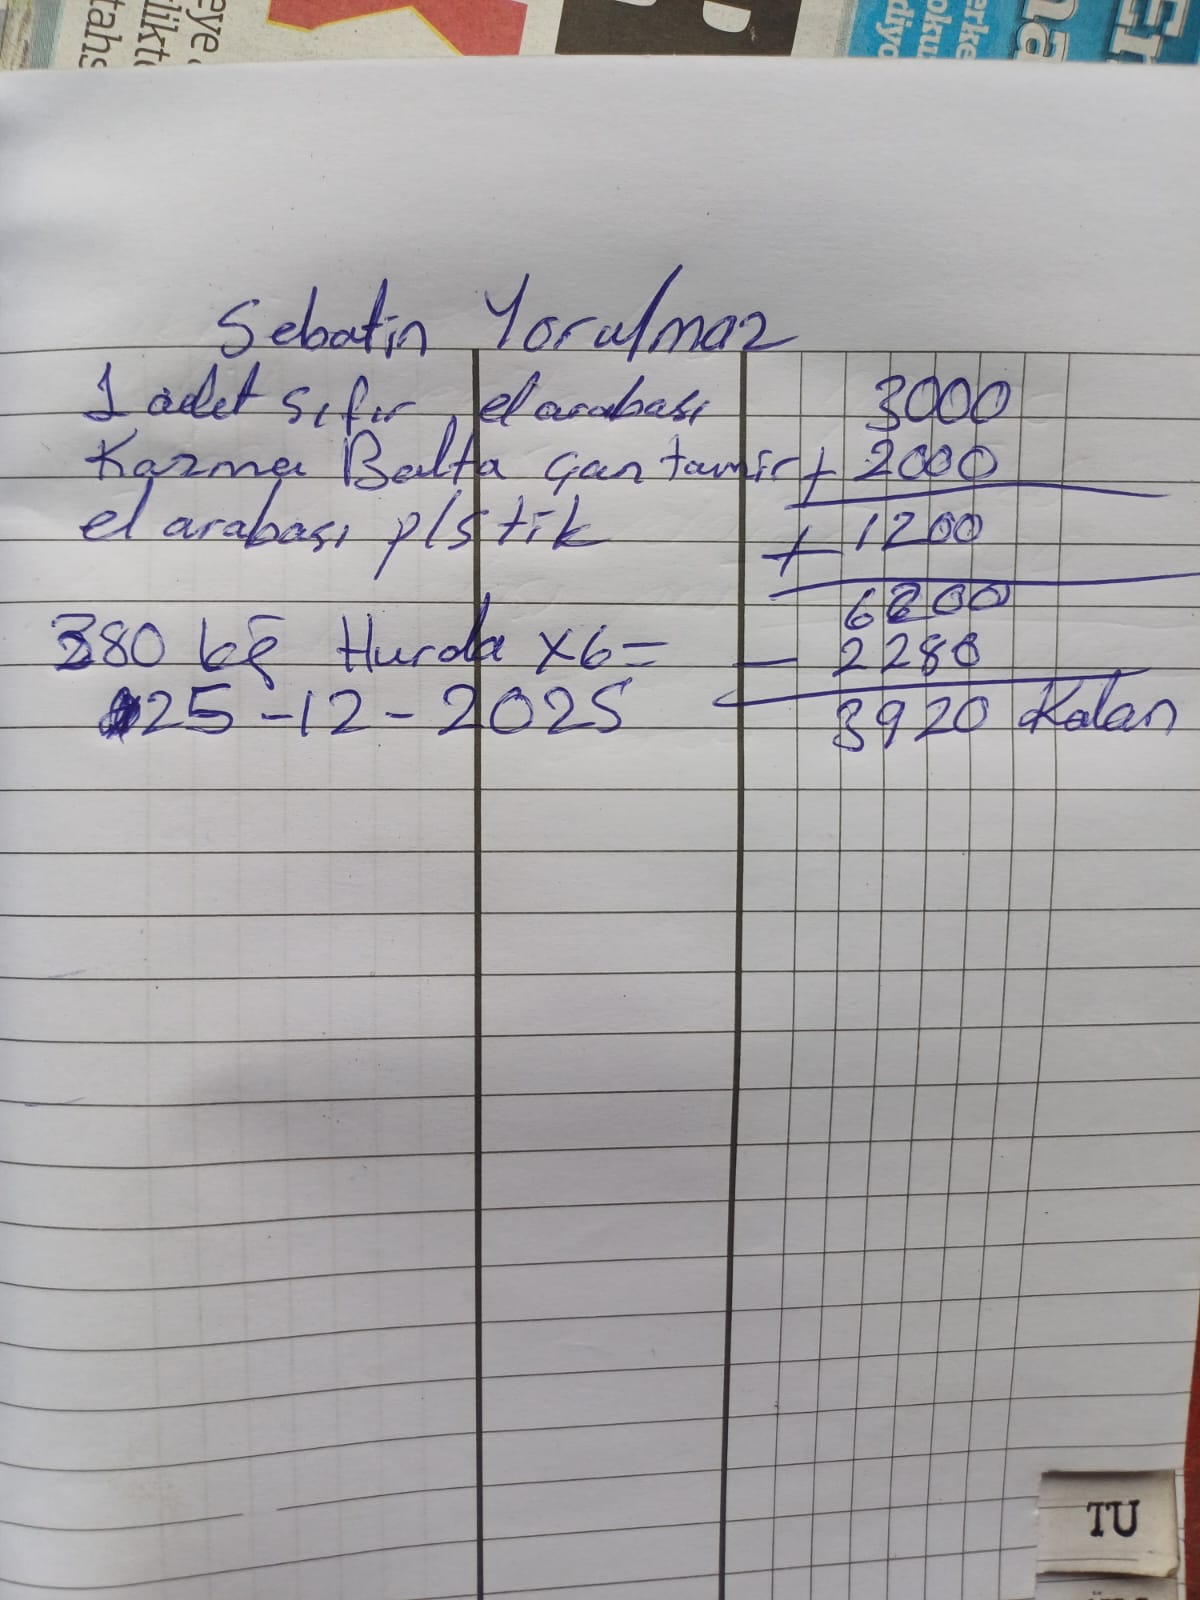 eye
likt
tahs
P
erke
oku
diyo
na
Er
Sebatin Yorulmaz
1 adet sıfır el arabası 3000
Kazma Balta Çan tamir + 2000
el arabası plstik + 1200
6200
380 kg Hurda x6= - 2280
25-12-2025 3920 Kalan
TU